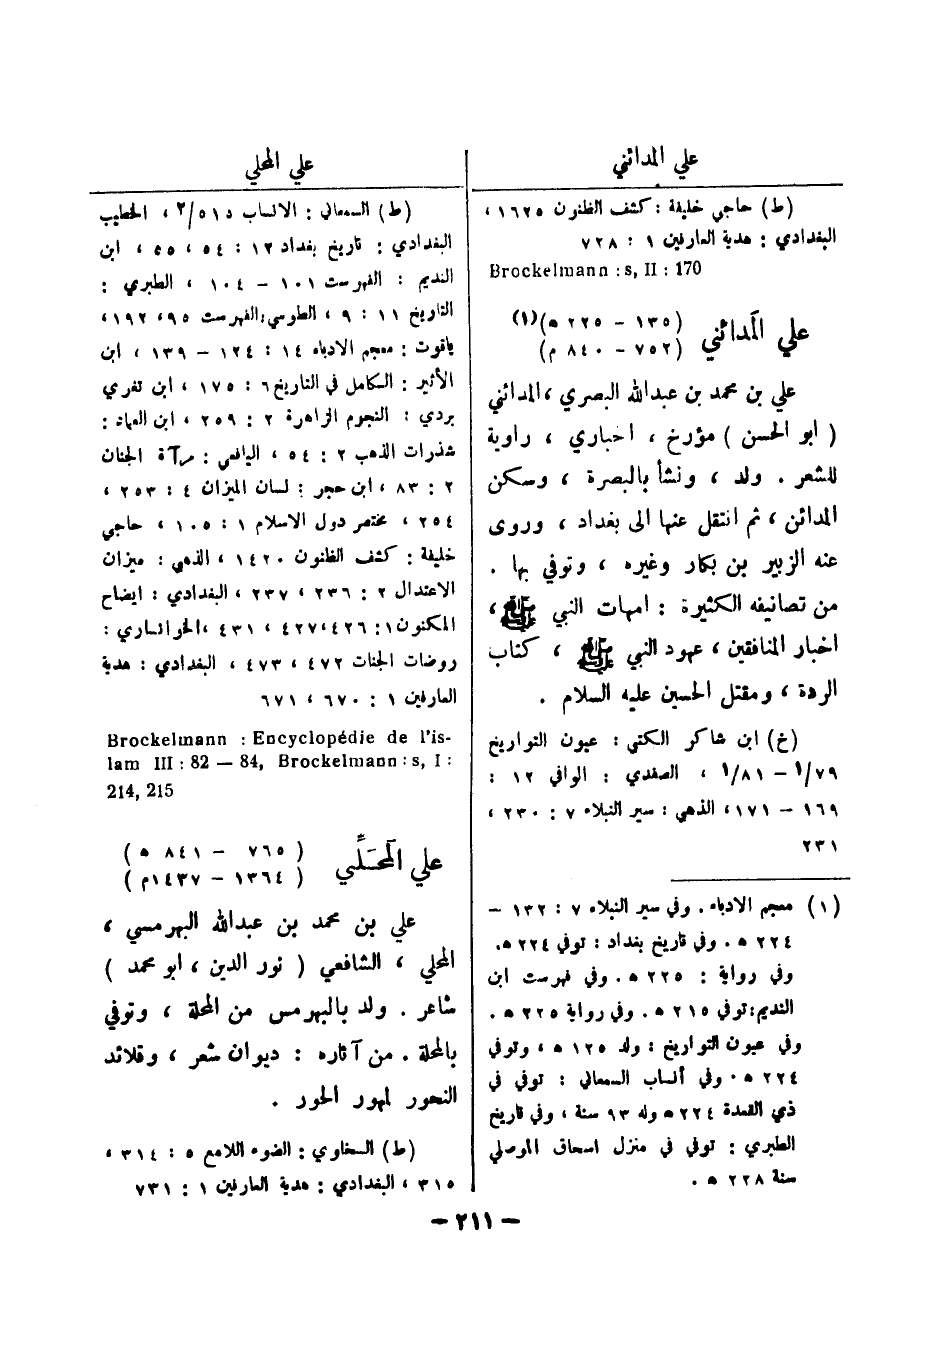 علي المدائني
(ط) حاجي خليفة : كشف الظنون ١٦٢٥ ،
البغدادي : هدية العارفين ١ : ٧٢٨
Brockelmann : s, II : 170
علي المَدائني (١٣٥ - ٢٢٥ هـ)(١)
(٧٥٢ - ٨٤٠ م)
علي بن محمد بن عبدالله البصري ، المدائني
( ابو الحسن ) مؤرخ ، اخباري ، راوية
للشعر . ولد ، ونشأ بالبصرة ، وسكن
المدائن ، ثم انتقل عنها الى بغداد ، وروى
عنه الزبير بن بكار وغيره ، وتوفي بها .
من تصانيفه الكثيرة : امهات النبي ﷺ ،
اخبار المنافقين ، عهود النبي ﷺ ، كتاب
الردة ، ومقتل الحسين عليه السلام .
(خ) ابن شاكر الكتبي : عيون التواريخ
١/٧٩ - ١/٨١ ، الصفدي : الوافي ١٢ :
١٦٩ - ١٧١ ، الذهبي : سير النبلاء ٧ : ٢٣٠ ،
٢٣١
(١) معجم الادباء . وفي سير النبلاء ٧ : ١٣٢ -
٢٢٤ هـ . وفي تاريخ بغداد : توفي ٢٢٤ هـ.
وفي رواية : ٢٢٥ هـ . وفي فهرست ابن
النديم : توفي ٢١٥ هـ . وفي رواية ٢٢٥ هـ .
وفي عيون التواريخ : ولد ١٢٥ هـ ، وتوفي
٢٢٤ هـ . وفي أنساب السمعاني : توفي في
ذي القعدة ٢٢٤ هـ وله ٩٣ سنة ، وفي تاريخ
الطبري : توفي في منزل اسحاق الموصلي
سنة ٢٢٨ هـ .
علي المحلي
(ط) السمعاني : الانساب ٥١٥/٢ ، الخطيب
البغدادي : تاريخ بغداد ١٢ : ٥٤ ، ٥٥ ، ابن
النديم : الفهرست ١٠١ - ١٠٤ ، الطبري :
التاريخ ١١ : ٩ ، الطوسي : الفهرست ٩٥ ، ١٩٢ ،
ياقوت : معجم الادباء ١٤ : ١٢٤ - ١٣٩ ، ابن
الأثير : الكامل في التاريخ ٦ : ١٧٥ ، ابن تغري
بردي : النجوم الزاهرة ٢ : ٢٥٩ ، ابن العماد :
شذرات الذهب ٢ : ٥٤ ، اليافعي : مرآة الجنان
٢ : ٨٣ ، ابن حجر : لسان الميزان ٤ : ٢٥٣ ،
٢٥٤ ، مختصر دول الاسلام ١ : ١٠٥ ، حاجي
خليفة : كشف الظنون ١٤٢٠ ، الذهبي : ميزان
الاعتدال ٢ : ٢٣٦ ، ٢٣٧ ، البغدادي : ايضاح
المكنون ١ : ٤٢٦ ، ٤٢٧ ، ٤٣١ ، الخوانساري :
روضات الجنات ٤٧٢ ، ٤٧٣ ، البغدادي : هدية
العارفين ١ : ٦٧٠ ، ٦٧١
Brockelmann : Encyclopédie de l'is-
lam III : 82 — 84, Brockelmann : s, I :
214, 215
علي المَحَلِّي ( ٧٦٥ - ٨٤١ هـ )
( ١٣٦٤ - ١٤٣٧م )
علي بن محمد بن عبدالله البهرمسي ،
المحلي ، الشافعي ( نور الدين ، ابو محمد )
شاعر . ولد بالبهرمس من المحلة ، وتوفي
بالمحلة . من آثاره : ديوان شعر ، وقلائد
النحور لمهور الحور .
(ط) السخاوي : الضوء اللامع ٥ : ٣١٤ ،
٣١٥ ، البغدادي : هدية العارفين ١ : ٧٣١
- ٢١١ -